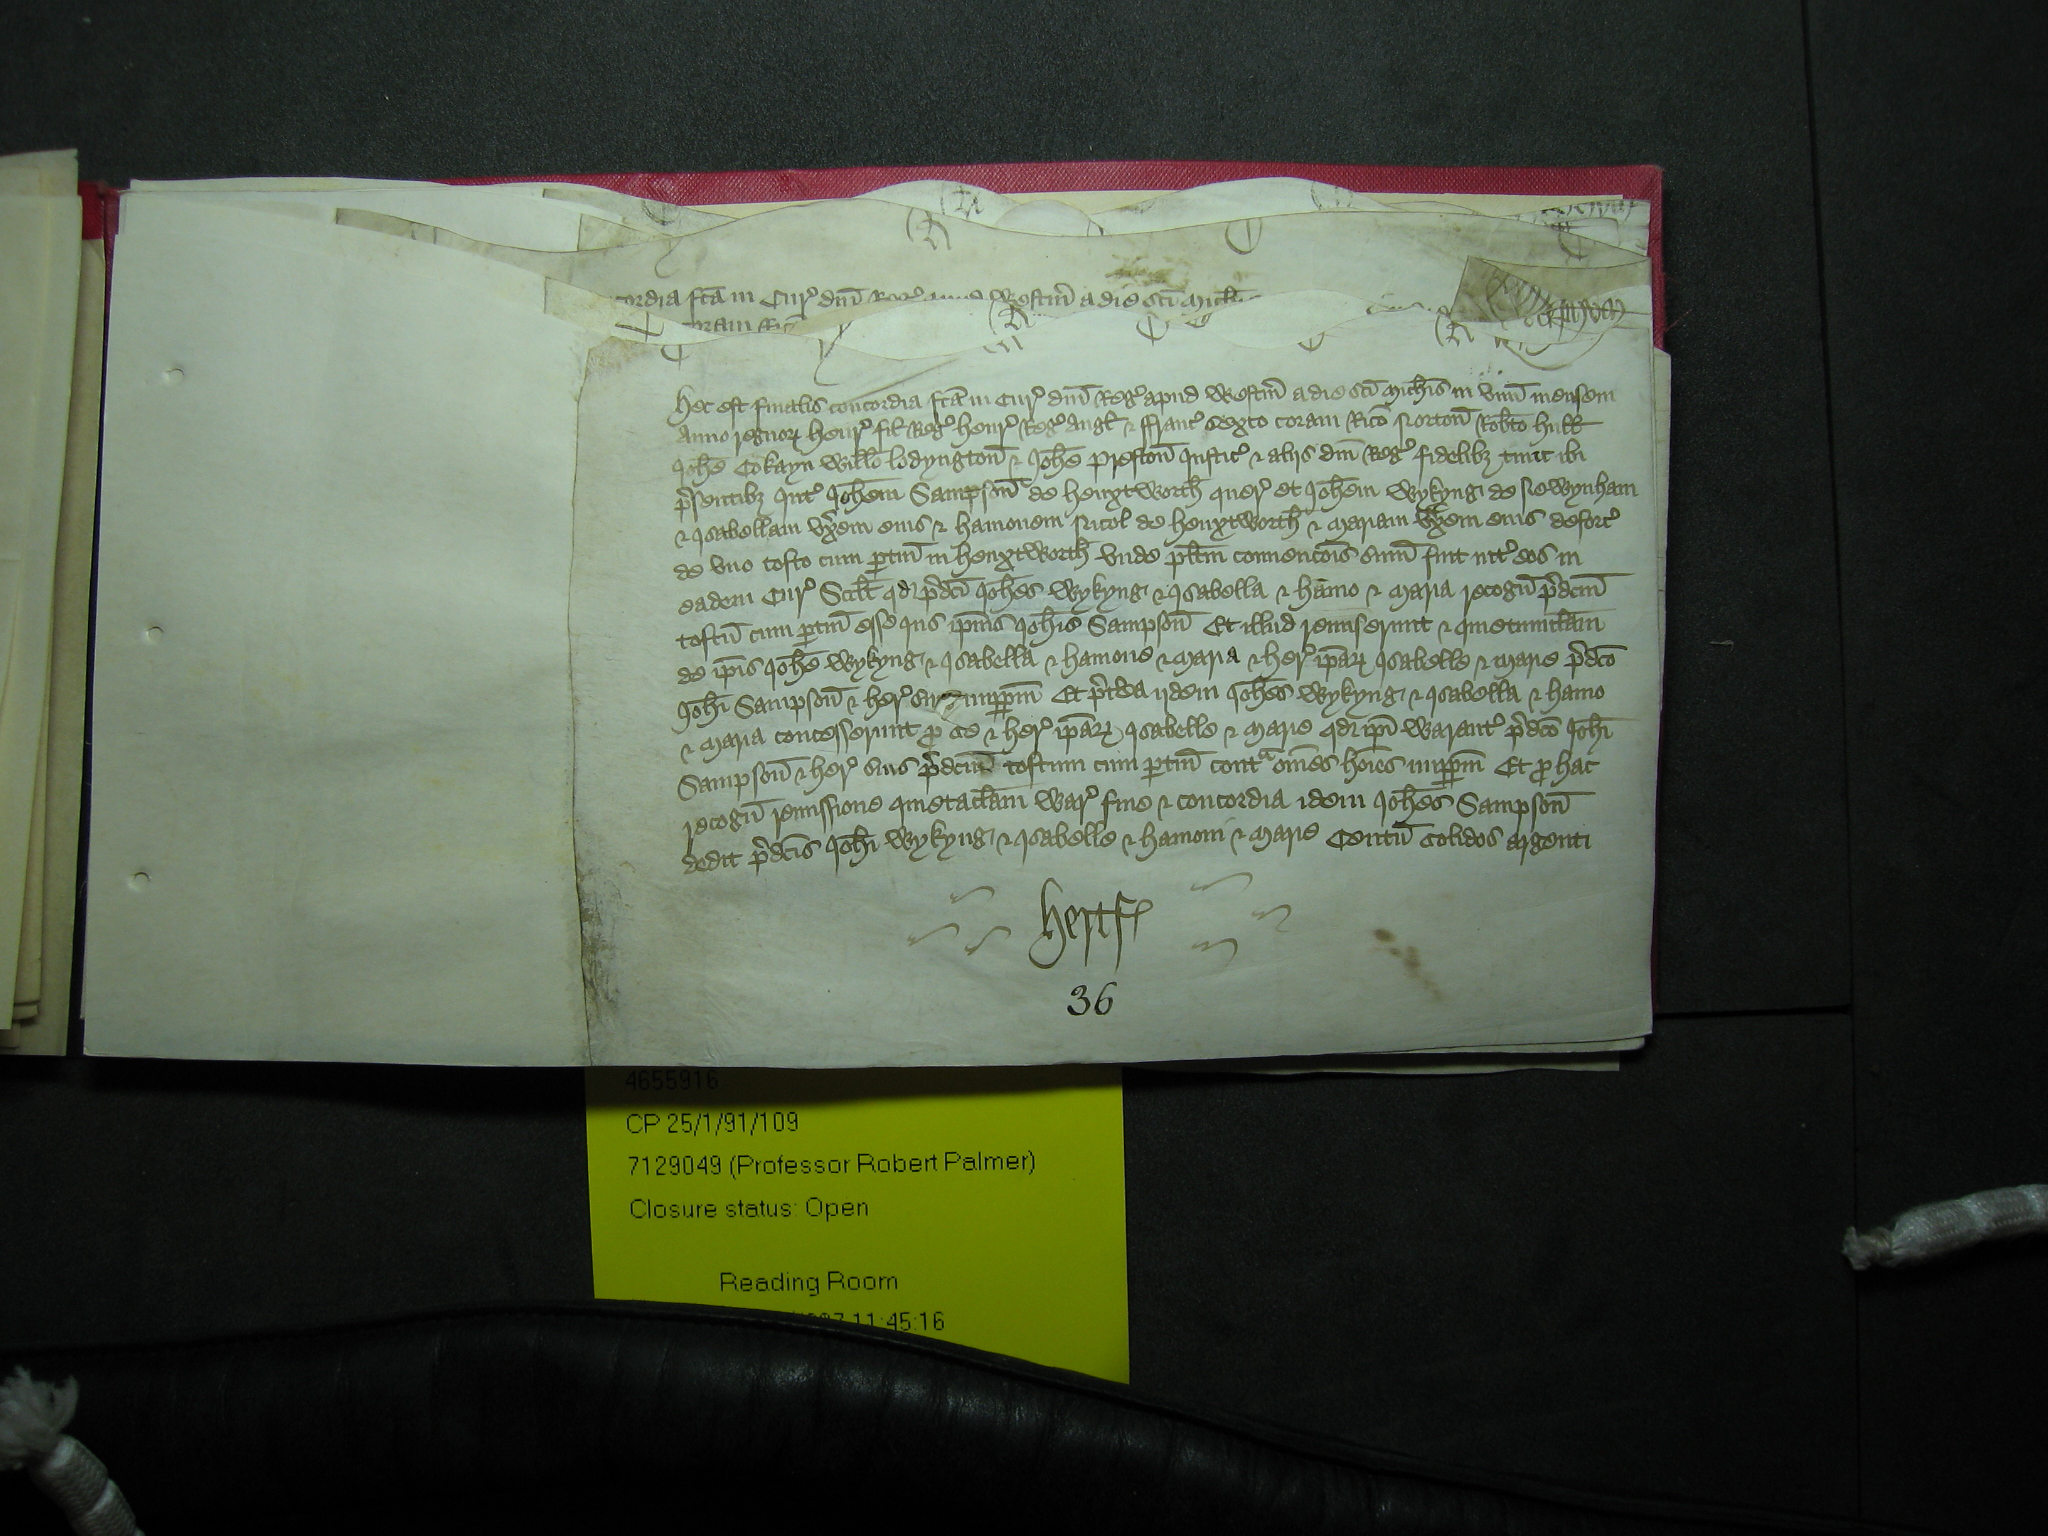 cordia fcā in Cur' dñi Reg' apud Westm̄ a die sci Mich
coram Ric
Hec est finalis concordia fcā in Cur' dñi Reg' apud Westm̄ a die sci Mich̄is in vnū mensem
anno regnoꝝ Henr' fil Reg' Henr' Reg' Angł & ffranc' sexto coram Rico Norton̄ Rob̄to Hull
Joh̄e Cokayn Willo Lodyngton̄ & Joh̄e Preston̄ Justic' & alijs dñi Reg' fidelibȝ tunc ibi
p̄sentibȝ Int' Joh̄em Sampson̄ de Henxtworth quer' et Joh̄em Wykyng de Newynham
& Isabellam vx̄em eius & Hamonem Nicol de Henxtworth & Mariam vx̄em eius deforc'
de vno tofto cum ptin̄ in Henxtworth vnde pl̄itm conuenc̄ois sum̄ fuit int' eos in
eadem Cur' Scilt qd p̄dci Joh̄es Wykyng & Isabella & Hamo & Maria recogn̄ p̄dcm̄
toftū cum ptin̄ esse ius ip̄ius Joh̄is Sampson̄ Et illud remiserunt & quietumclam̄
de ip̄is Joh̄e Wykyng & Isabella & Hamone & Maria & her' ip̄aꝝ Isabelle & Marie p̄dco
Joh̄i Sampson̄ & her' suis imppm̄ Et p̄tea ijdem Joh̄es Wykyng & Isabella & Hamo
& Maria concesserunt p se & her' ip̄aꝝ Isabelle & Marie qd ip̄i Warant' p̄dco Joh̄i
Sampson̄ & her' suis p̄dcm̄ toftum cum ptin̄ contᵃ om̄es hōies imppm̄ Et p hac
recogn̄ remissione quietaclam̄ War' fine & concordia idem Joh̄es Sampson̄
dedit p̄dcis Joh̄i Wykyng & Isabelle & Hamoni & Marie Centū solidos argenti
Hertf'
36
4655916
CP 25/1/91/109
7129049 (Professor Robert Palmer)
Closure status: Open
Reading Room
11:45:16